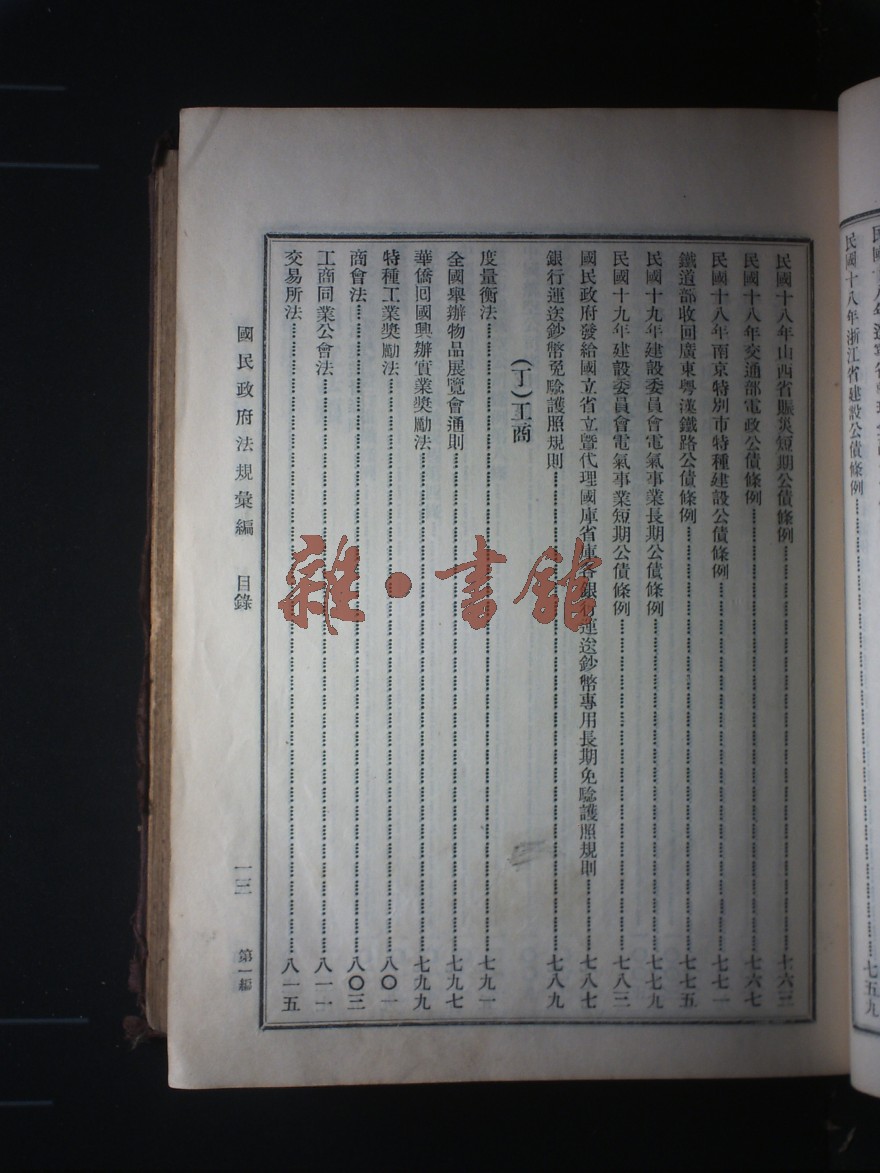 民國十八年浙江省建設公債條例⋯⋯七五九
民國十八年山西省賑災短期公債條例⋯⋯七六三
民國十八年交通部電政公債條例⋯⋯七六七
民國十八年南京特別市特種建設公債條例⋯⋯七七一
鐵道部收回廣東粵漢鐵路公債條例⋯⋯七七五
民國十九年建設委員會電氣事業長期公債條例⋯⋯七七九
民國十九年建設委員會電氣事業短期公債條例⋯⋯七八三
國民政府發給國立省立暨代理國庫省庫各銀行運送鈔幣專用長期免驗護照規則⋯⋯七八七
銀行運送鈔幣免驗護照規則⋯⋯七八九
(丁)工商
度量衡法⋯⋯七九一
全國舉辦物品展覽會通則⋯⋯七九七
華僑回國興辦實業獎勵法⋯⋯七九九
特種工業獎勵法⋯⋯八〇一
商會法⋯⋯八〇三
工商同業公會法⋯⋯八一一
交易所法⋯⋯八一五
國民政府法規彙編 目錄 一三 第一編
雜·書館